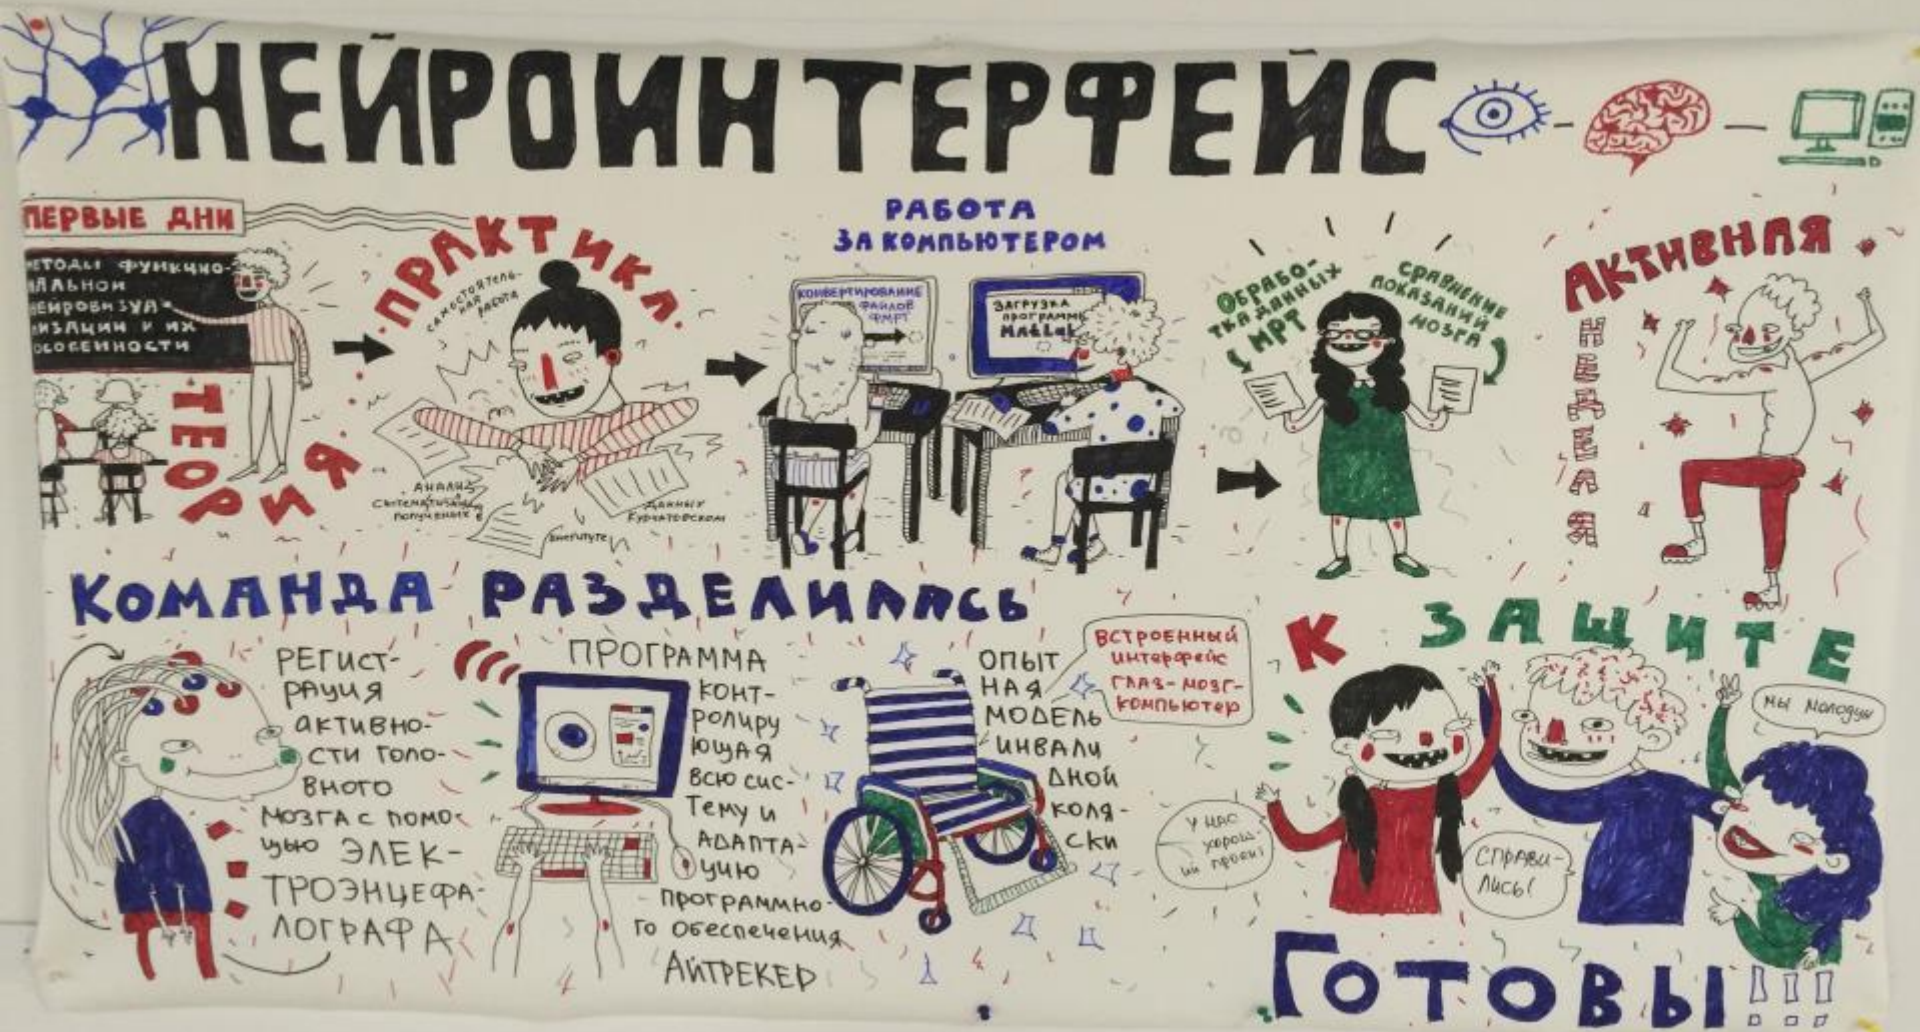 НЕЙРОИНТЕРФЕЙС
ПЕРВЫЕ ДНИ
ЕТОДЫ ФУНКЦИО-
НАЛЬНОЙ
НЕЙРОВИЗУА-
ИЗАЦИИ И ИХ
ОСОБЕННОСТИ
ТЕОРИЯ
ПРАКТИКА
САМОСТОЯТЕЛЬ-
НАЯ
РАБОТА
АНАЛИЗ
СИСТЕМАТИЗАЦ
полученных
ДАННЫХ
Курчатовском
Институте
РАБОТА
ЗА КОМПЬЮТЕРОМ
КОНВЕРТИРОВАНИЕ
ФАЙЛОВ
ФМРТ
ЗАГРУЗКА
ПРОГРАММЫ
MatLab
ОБРАБО-
ТКА ДАННЫХ
МРТ
СРАВНЕНИЕ
ПОКАЗАНИЙ
МОЗГА
АКТИВНАЯ
НЕДЕЛЯ
КОМАНДА РАЗДЕЛИЛАСЬ
РЕГИСТ-
РАЦИЯ
АКТИВНО-
СТИ ГОЛО-
ВНОГО
МОЗГА С ПОМО-
ЩЬЮ ЭЛЕК-
ТРОЭНЦЕФА-
ЛОГРАФА
ПРОГРАММА
КОНТ-
РОЛИРУ
ЮЩАЯ
ВСЮ СИС-
ТЕМУ И
АДАПТА-
ЦИЮ
ПРОГРАММНО-
ГО ОБЕСПЕЧЕНИЯ
АЙТРЕКЕР
ОПЫТ
НАЯ
МОДЕЛЬ
ИНВАЛИ
ДНОЙ
КОЛЯ-
СКИ
ВСТРОЕННЫЙ
интерфейс
ГЛАЗ-МОЗГ-
КОМПЬЮТЕР
К ЗАЩИТЕ
МЫ МОЛОДЦЫ
У НАС
хорош-
ий проект
СПРАВИ-
ЛИСЬ!
ГОТОВЫ!!!